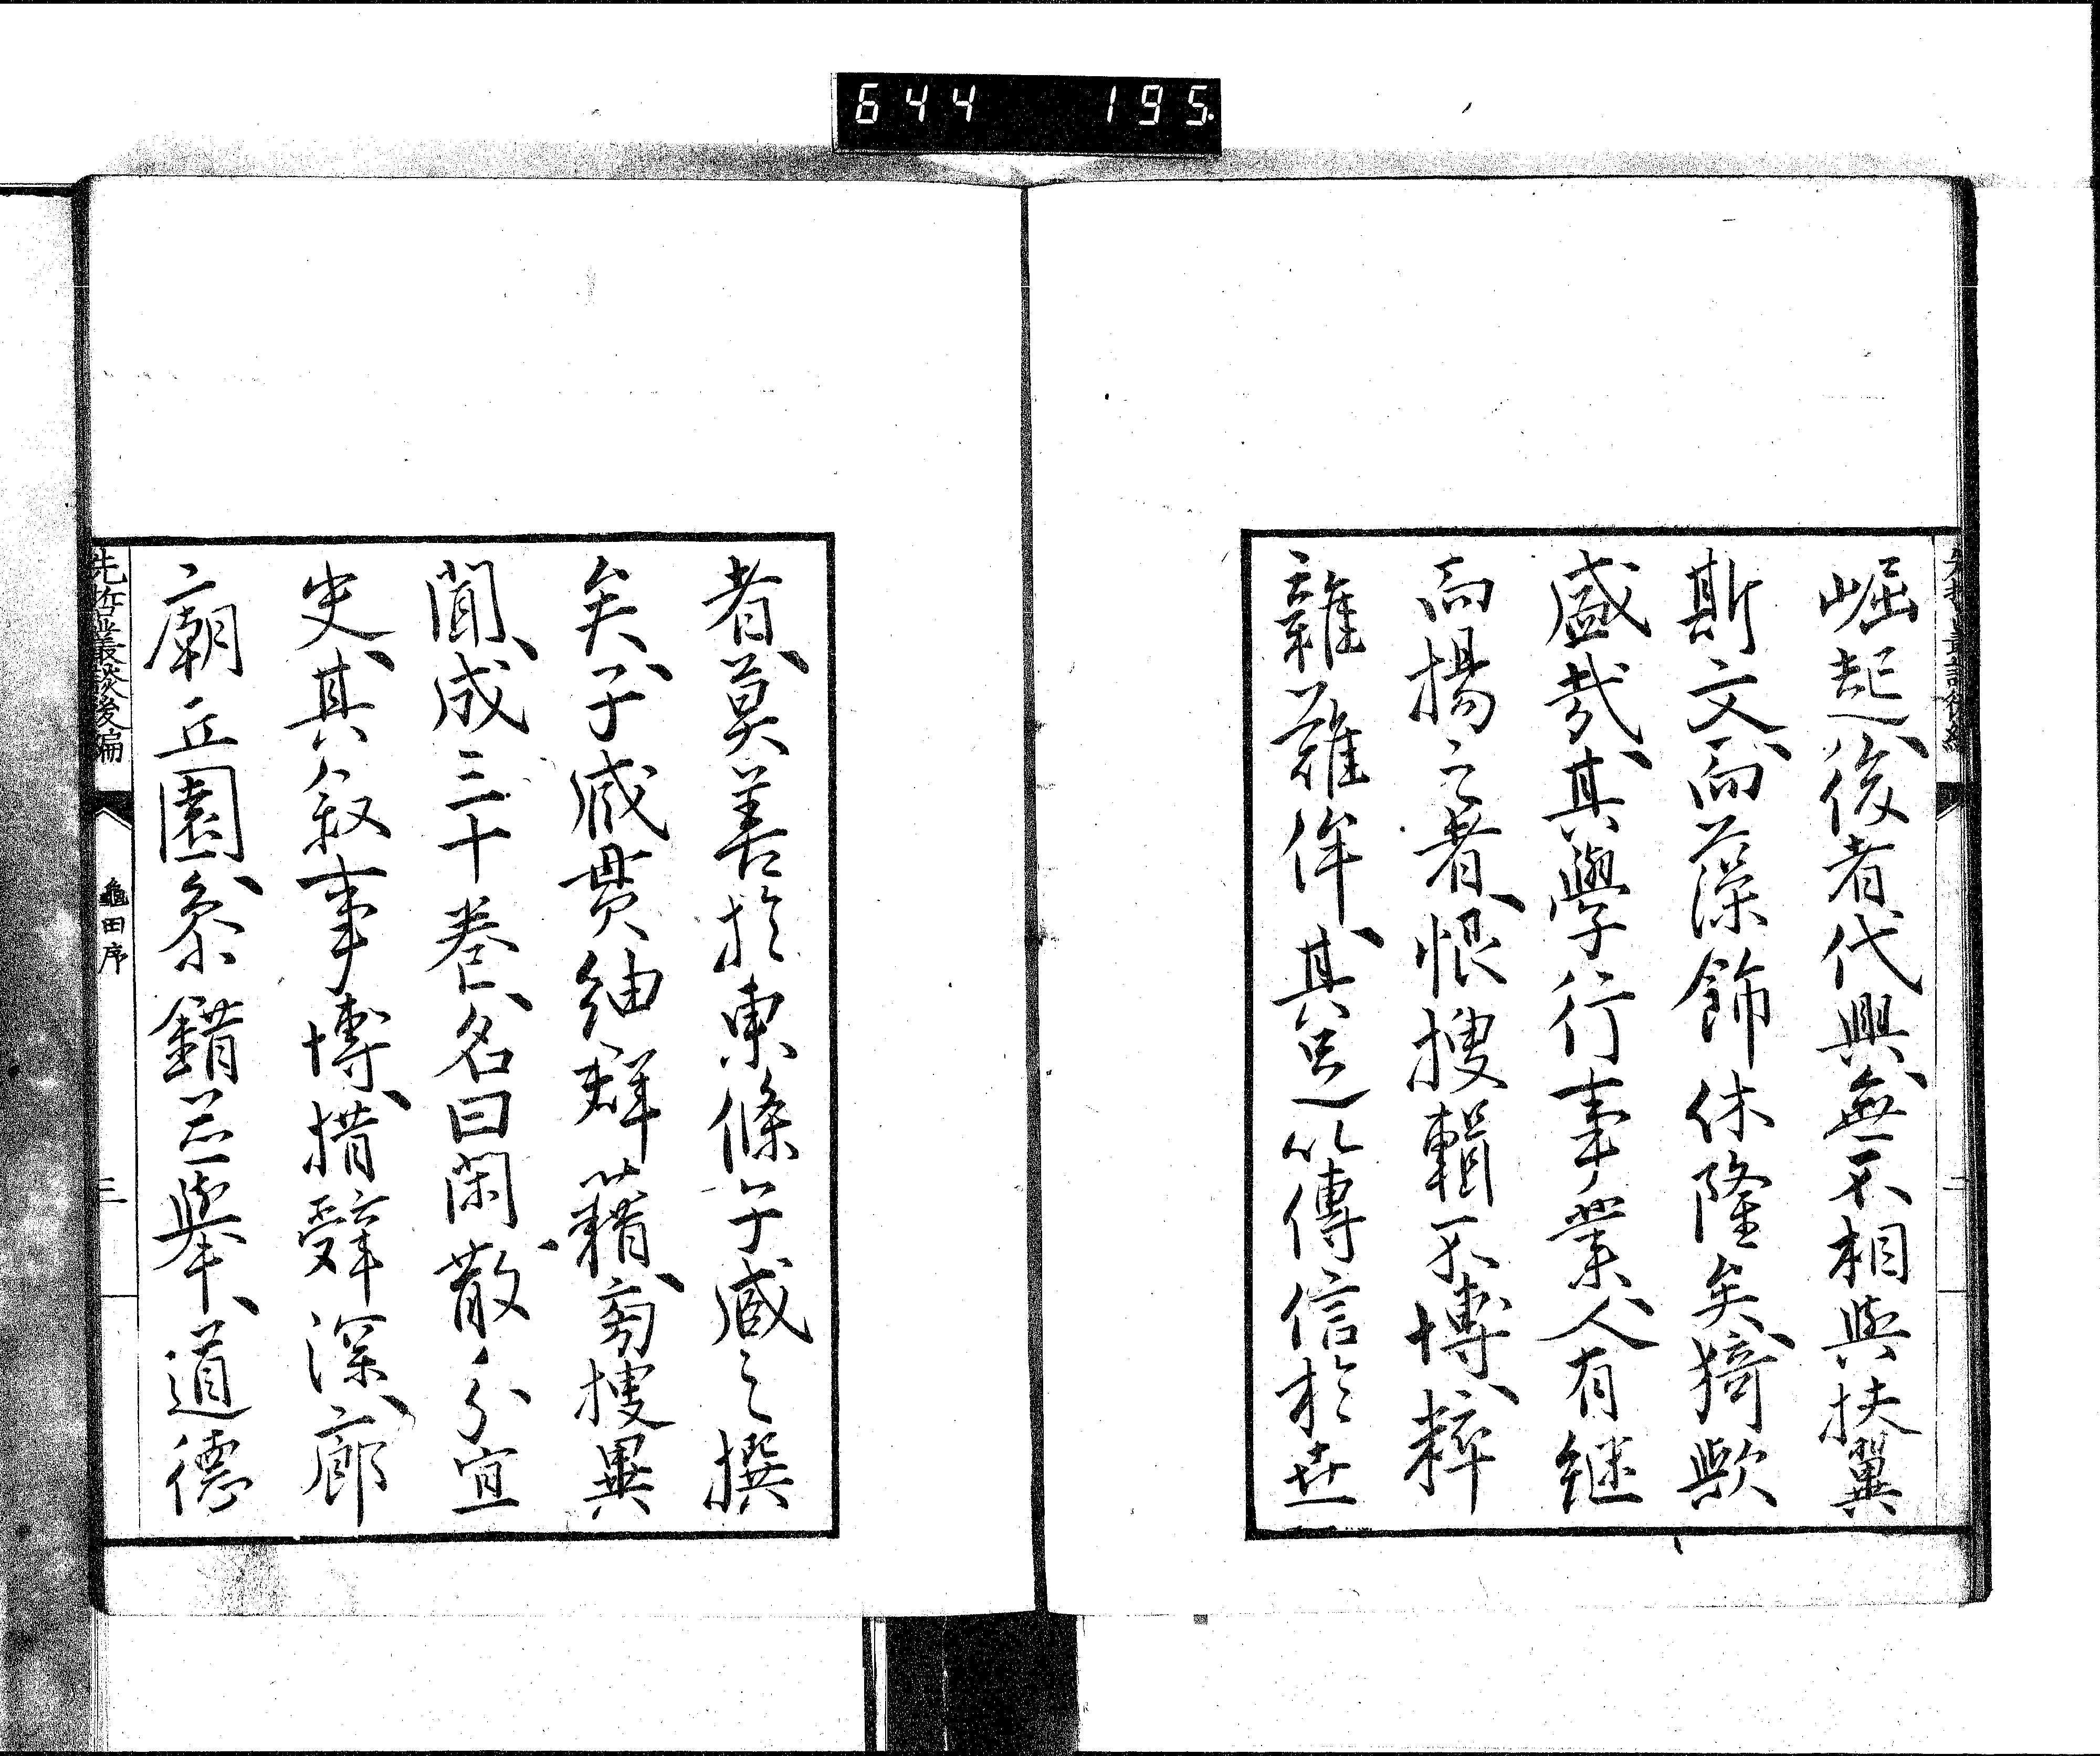 644 195
崛起、後者代興、無不相與扶翼
斯文、而藻飾休隆矣、猗歟
盛哉、其學行事業、人有継
而揚之者、恨搜輯不博、粹
雜難侔、其足以傳信於世
者、莫善於東條子臧之撰
矣、子臧貫紬群籍、蒭搜異
聞、成三十巻、名曰閑散餘宜
史、其叙事博、措辭深、廊
廟丘園、叅錯並舉、道德
先哲叢談後編
龜田序
三